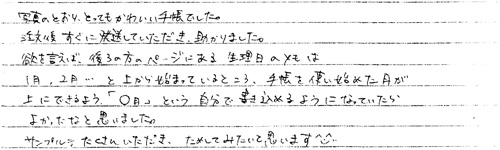 写真のとおり、とってもかわいい手帳でした。
注文後すぐに発送していただき、助かりました。
欲を言えば、後ろの方のページにある生理日のメモは
1月、2月…と上から始まっているところ、手帳を使い始めた月が
上にできるよう、「〇月」という自分で書き込めるようになっていたら
よかったなと思いました。
サンプルもたくさんいただき、ためしてみたいと思います^^